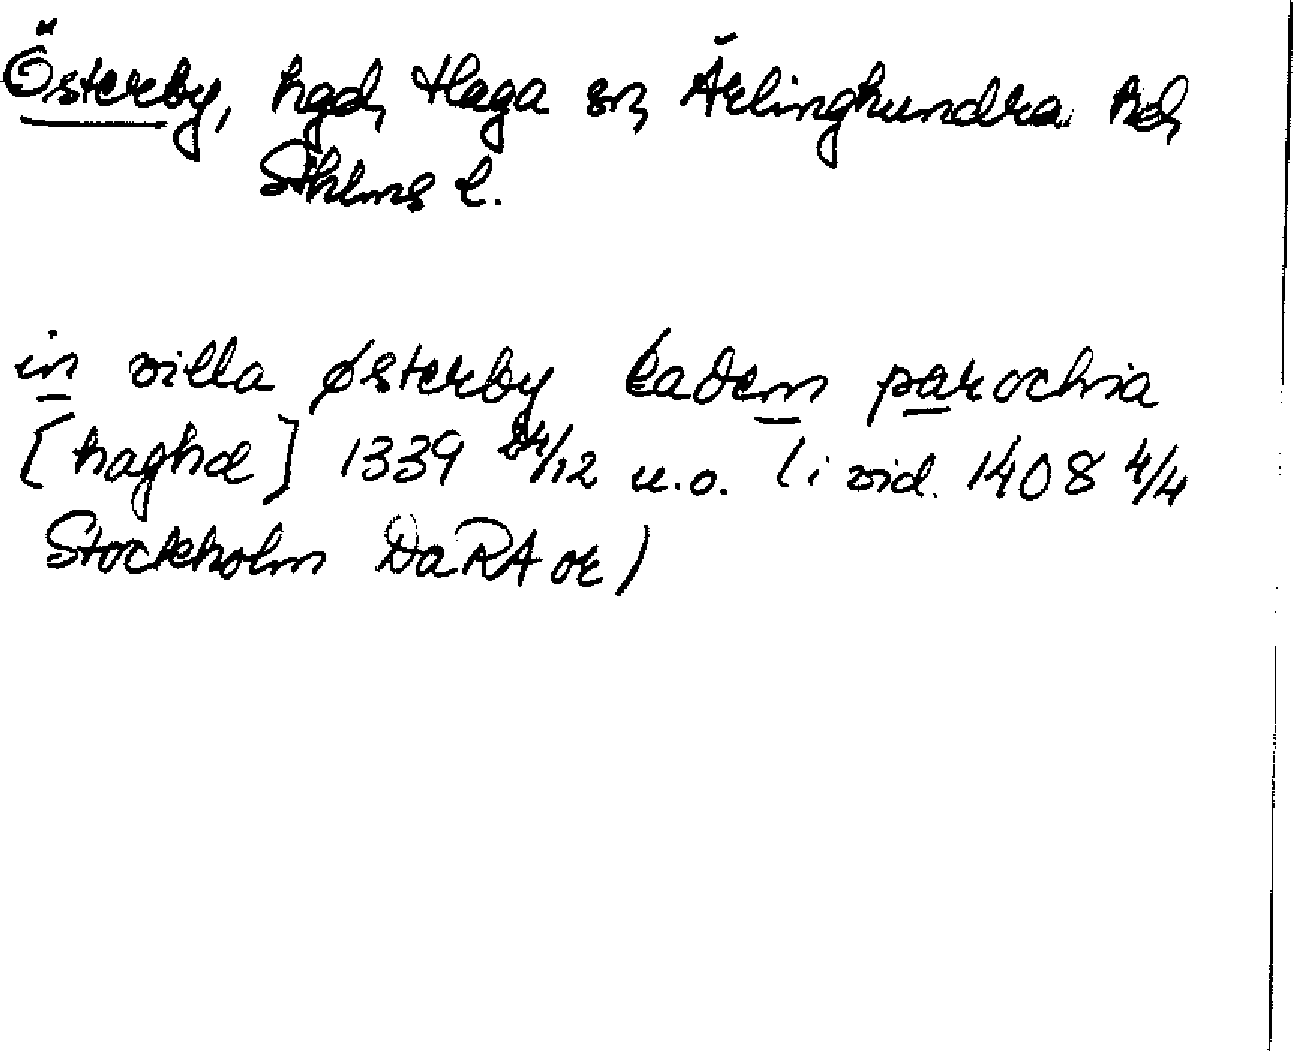 Österby, hgd, Haga sn, Ärlinghundra hd,
Sthlms l.
in villa østerby eadem parochia
[haghæ] 1339 24/12 u.o. (i vid. 1408 4/4
Stockholm DaRA or)